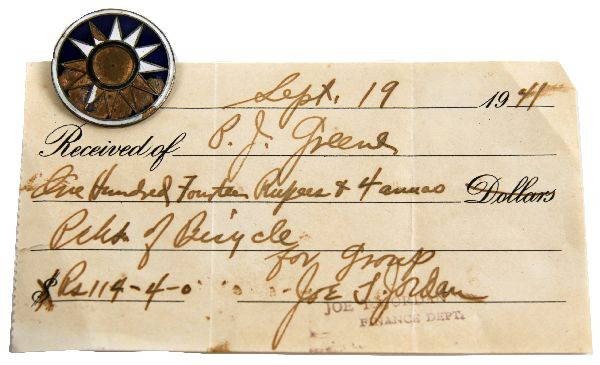 Sept. 19 1941
Received of P. J. Greene
One Hundred Fourteen Rupees & 4 annas Dollars
of Bicycle
for Group
$ Rs 114-4-0 Joe T. Jordan
JOE T. JORDAN
FINANCE DEPT.